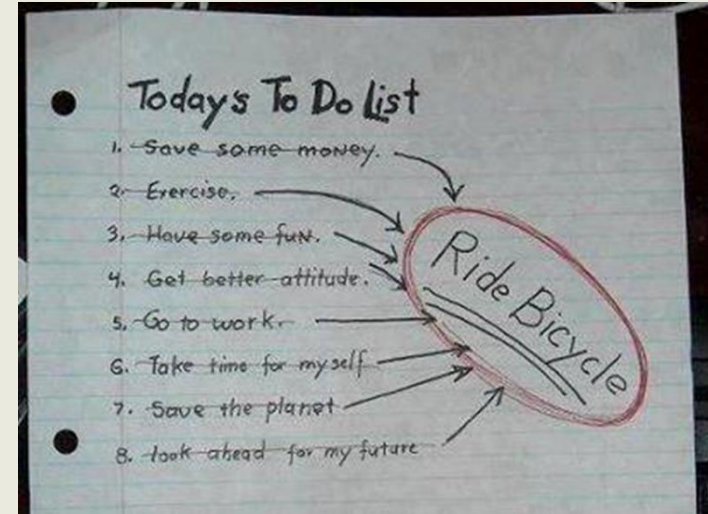 Today's To Do List
1. Save some money.
2. Exercise.
3. Have some fun.
4. Get better attitude.
5. Go to work.
6. Take time for myself
7. Save the planet
8. look ahead for my future
Ride Bicycle